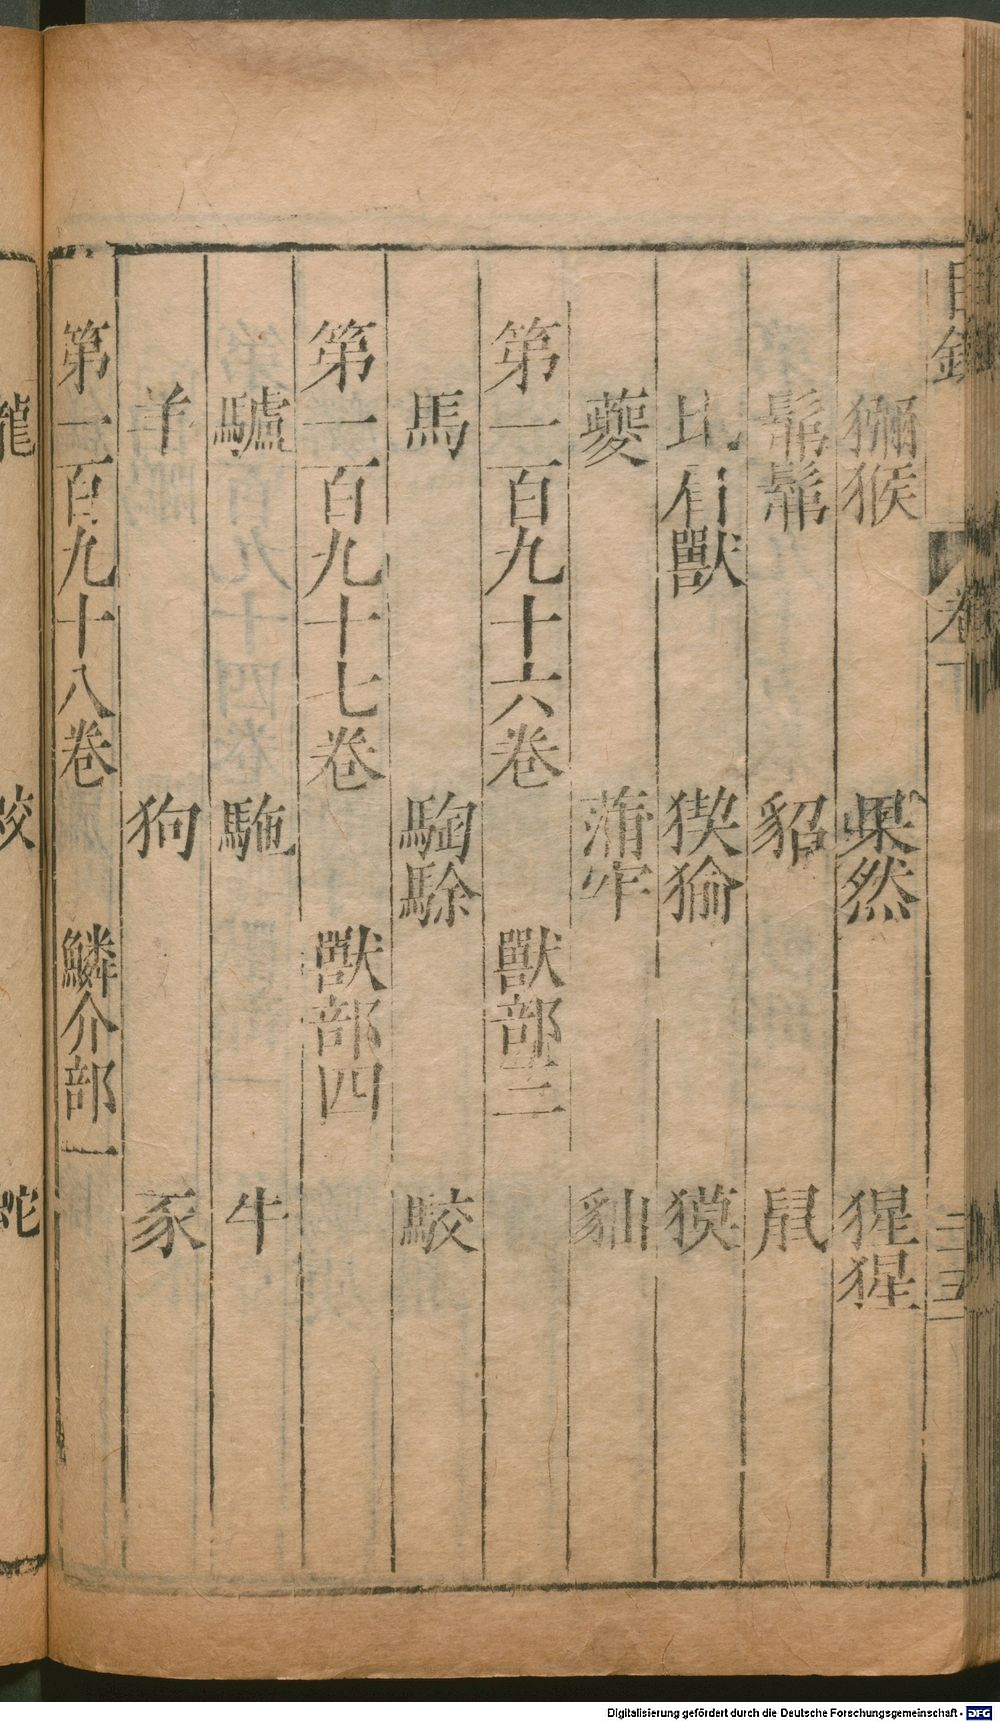 目錄 卷下 三三
獼猴 果然 猩猩
𩳁𩳁 貂 鼠
比肩獸 猰㺄 獏
夔 蒲牢 貀
第一百九十六卷 獸部三
馬 騊駼 駮
第一百九十七卷 獸部四
驢 駞 牛
羊 狗 豕
第一百九十八卷 鱗介部一
龍 蛟 蛇
Digitalisierung gefördert durch die Deutsche Forschungsgemeinschaft - DFG